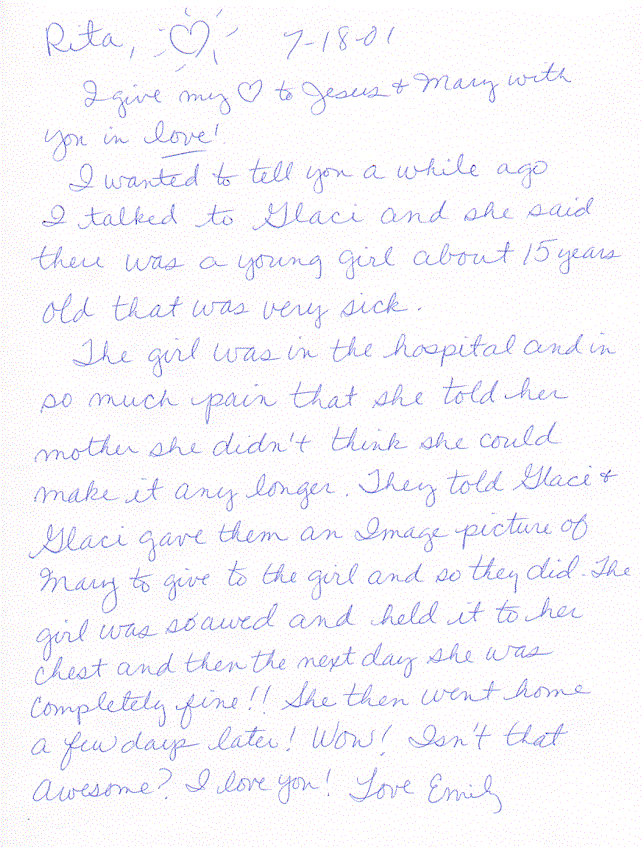 Rita, ♡ 7-18-01
I give my ♡ to Jesus & Mary with
you in love!
I wanted to tell you a while ago
I talked to Glaci and she said
there was a young girl about 15 years
old that was very sick.
The girl was in the hospital and in
so much pain that she told her
mother she didn't think she could
make it any longer. They told Glaci &
Glaci gave them an Image picture of
Mary to give to the girl and so they did. The
girl was so awed and held it to her
chest and then the next day she was
completely fine!! She then went home
a few days later! Wow! Isn't that
awesome? I love you! Love Emily